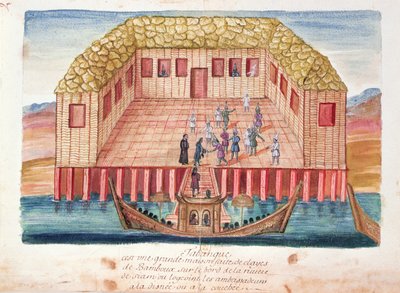 Tabanque
cest une grande maison faite de clayes
de Bambouc sur le bord de la riviere
de siam ou logeoint les ambassadeurs
a la dignée ou a la couchée